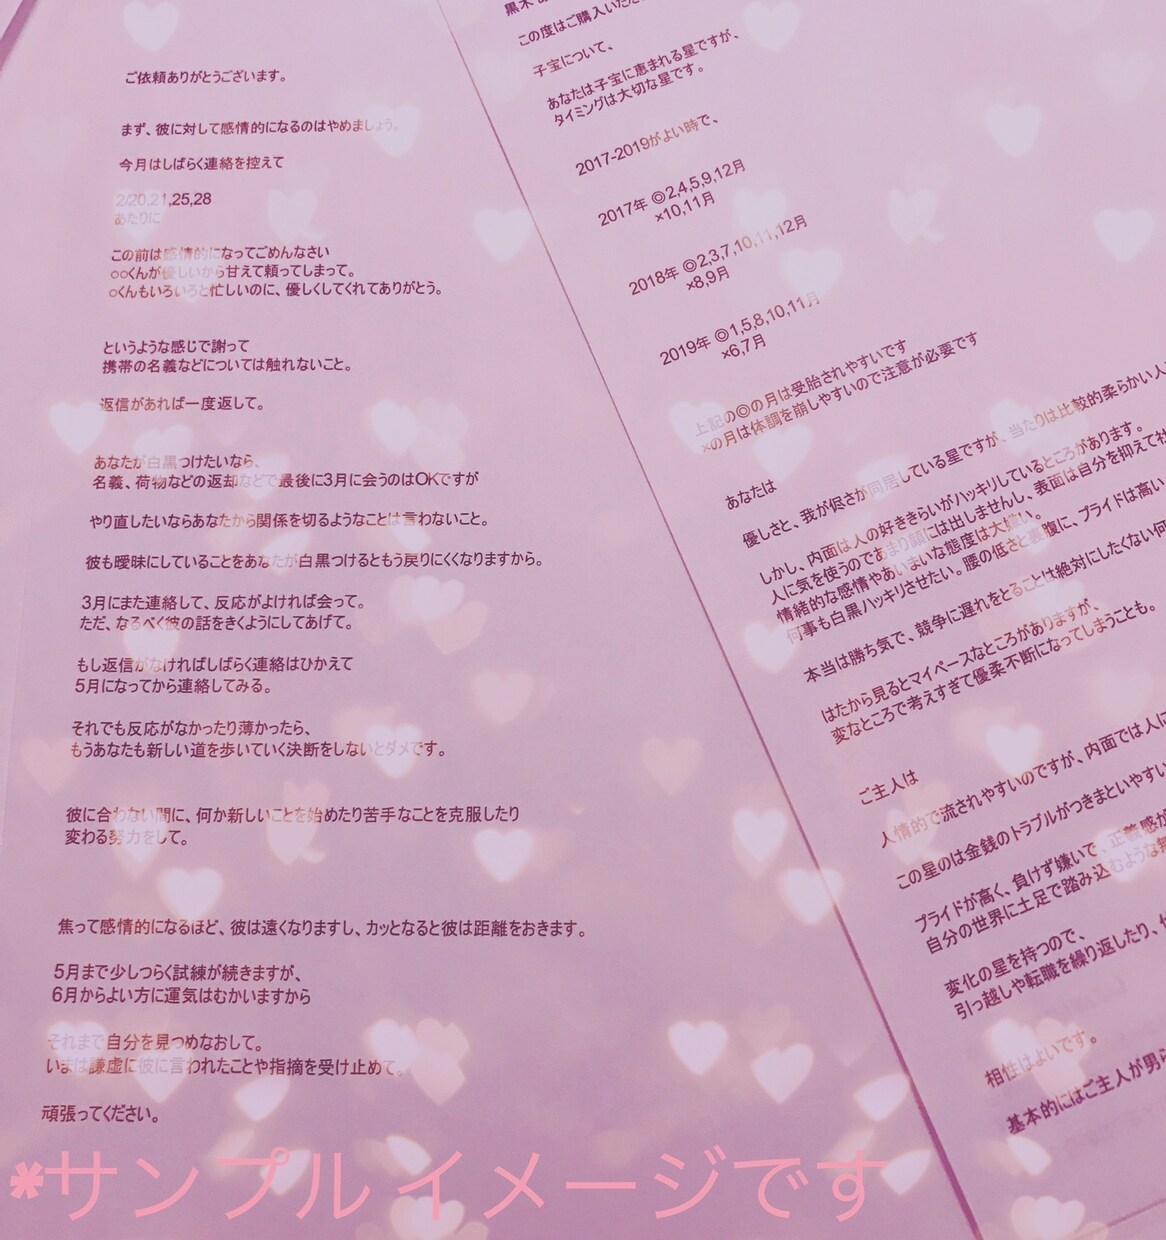 ご依頼ありがとうございます。
まず、彼に対して感情的になるのはやめましょう。
今月はしばらく連絡を控えて
2/20,21,25,28
あたりに
この前は感情的になってごめんなさい
○○くんが優しいから甘えて頼ってしまって。
○くんもいろいろと忙しいのに、優しくしてくれてありがとう。
というような感じで謝って
携帯の名義などについては触れないこと。
返信があれば一度返して。
あなたが白黒つけたいなら、
名義、荷物などの返却などで最後に3月に会うのはOKですが
やり直したいならあなたから関係を切るようなことは言わないこと。
彼も曖昧にしていることをあなたが白黒つけるともう戻りにくくなりますから。
3月にまた連絡して、反応がよければ会って。
ただ、なるべく彼の話をきくようにしてあげて。
もし返信がなければしばらく連絡はひかえて
5月になってから連絡してみる。
それでも反応がなかったり薄かったら、
もうあなたも新しい道を歩いていく決断をしないとダメです。
彼に合わない間に、何か新しいことを始めたり苦手なことを克服したり
変わる努力をして。
焦って感情的になるほど、彼は遠くなりますし、カッとなると彼は距離をおきます。
5月まで少しつらく試練が続きますが、
6月からよい方に運気はむかいますから
それまで自分を見つめなおして。
いまは謙虚に彼に言われたことや指摘を受け止めて。
頑張ってください。
黒木
この度はご購入いただ
子宝について、
あなたは子宝に恵まれる星ですが、
タイミングは大切な星です。
2017-2019がよい時で、
2017年 ◎2,4,5,9,12月
×10,11月
2018年 ◎2,3,7,10,11,12月
×8,9月
2019年 ◎1,5,8,10,11月
×6,7月
上記の◎の月は受胎されやすいです
×の月は体調を崩しやすいので注意が必要です
あなたは
優しさと、我が侭さが同居している星ですが、当たりは比較的柔らかい人
しかし、内面は人の好ききらいがハッキリしているところがあります。
人に気を使うのであまり顔には出しませんし、表面は自分を抑えて社
情緒的な感情やあいまいな態度は大嫌い。
何事も白黒ハッキリさせたい。腰の低さと裏腹に、プライドは高い
本当は勝ち気で、競争に遅れをとることは絶対にしたくない何
はたから見るとマイペースなところがありますが、
変なところで考えすぎて優柔不断になってしまうことも。
ご主人は
人情的で流されやすいのですが、内面では人に
この星のは金銭のトラブルがつきまといやすい
プライドが高く、負けず嫌いで、正義感が
自分の世界に土足で踏み込むような無
変化の星を持つので、
引っ越しや転職を繰り返したり、
相性はよいです。
基本的にはご主人が男
*サンプルイメージです